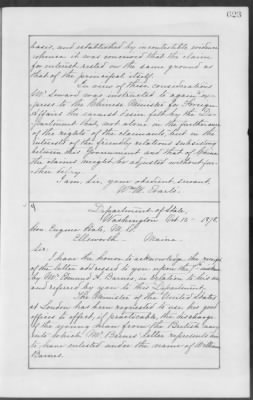 623
basis, and established by incontestible evidence
whence it was conceived that the claim
for interest rested on the same ground as
that of the principal itself.
In view of these considerations
Mr. Seward was instructed to again ex-
press to the Chinese Minister for Foreign
Affairs the earnest desire felt by the De-
partment that, not alone in the furtherance
of the rights of the claimants, but in the
interests of the friendly relations subsisting
between this Government and that of China
the claims might be adjusted without fur-
ther delay.
I am, sir, your obedient servant,
Wm
Department of State,
Washington Oct. 12 - 1878.
Hon Eugene Hale, M. C.
Ellsworth - Maine.
Sir:
I have the honor to acknowledge the receipt
of the letter addressed to you upon the
by Mr. Edmund A. Barnes, in relation to his son
and referred by you to this Department.
The Minister of the United States
at London has been requested to use his good
offices to effect, if practicable, the discharge
of the young man from the British navy
into which Mr. Barnes' letter represents him
to have enlisted under the name of William
Barnes.